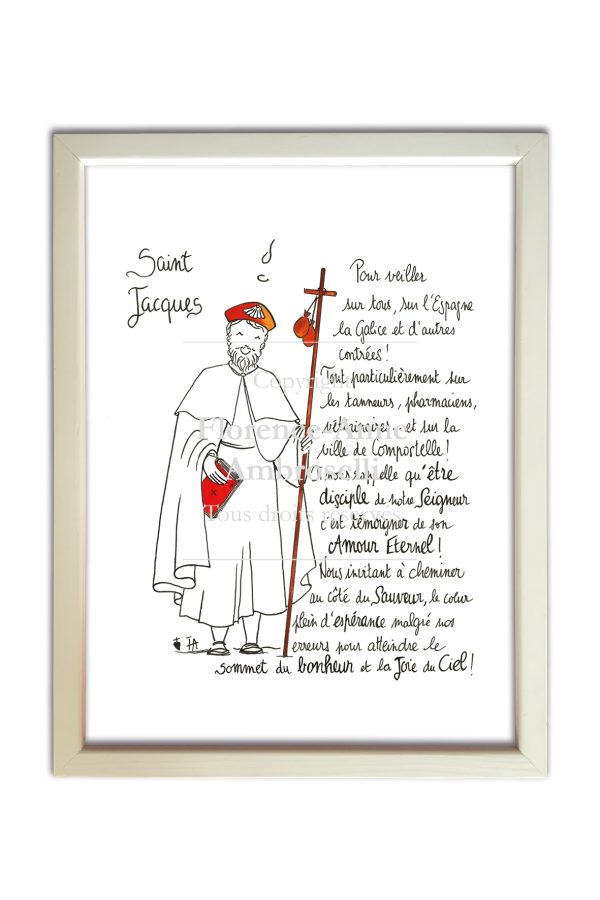 Saint
Jacques
Pour veiller
sur tous, sur l'Espagne
la Galice et d'autres
contrées !
Tout particulièrement sur
les tanneurs, pharmaciens,
vétérinaires et sur la
ville de Compostelle !
nous rappelle qu'être
disciple de notre Seigneur
c'est témoigner de son
Amour Eternel !
Nous invitant à cheminer
au côté du Sauveur, le cœur
plein d'espérance malgré nos
erreurs pour atteindre le
sommet du bonheur et la Joie du Ciel !
FA
Copyright
Florence-Anne
Ambroselli
Tous droits réservés